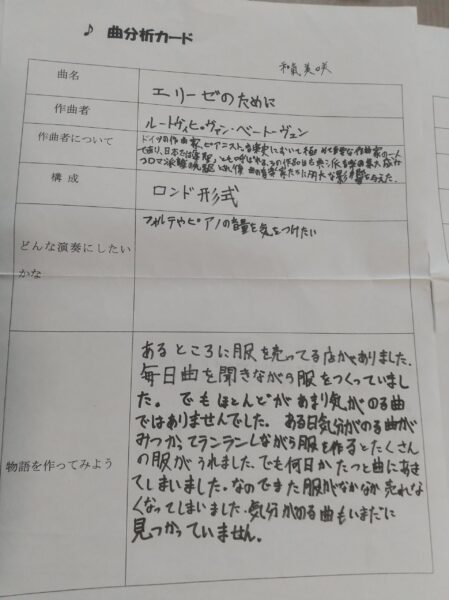 ♪ 曲分析カード
和氣美咲
曲名
エリーゼのために
作曲者
ルートヴィヒ・ヴァン・ベートーヴェン
作曲者について
ドイツの作曲家、ピアニスト。音楽史において極めて重要な作曲家の一人
であり、日本では「楽聖」とも呼ばれる。その作品は古典派音楽の集大成か
つロマン派音楽の先駆とされ、後世の音楽家たちに多大な影響を与えた。
構成
ロンド形式
どんな演奏にしたい
かな
フォルテやピアノの音量を気をつけたい
物語を作ってみよう
あるところに服を売ってる店がありました。
毎日曲を聞きながら服をつくっていまし
た。でもほとんどがあまり気がのる曲
ではありませんでした。ある日気分がのる曲が
みつかってランランしながら服を作るとたくさん
の服がうれました。でも何日かたつと曲にあき
てしまいました。なのでまた服がなかなか売れな
くなってしまいました。気分がのる曲もいまだに
見つかっていません。